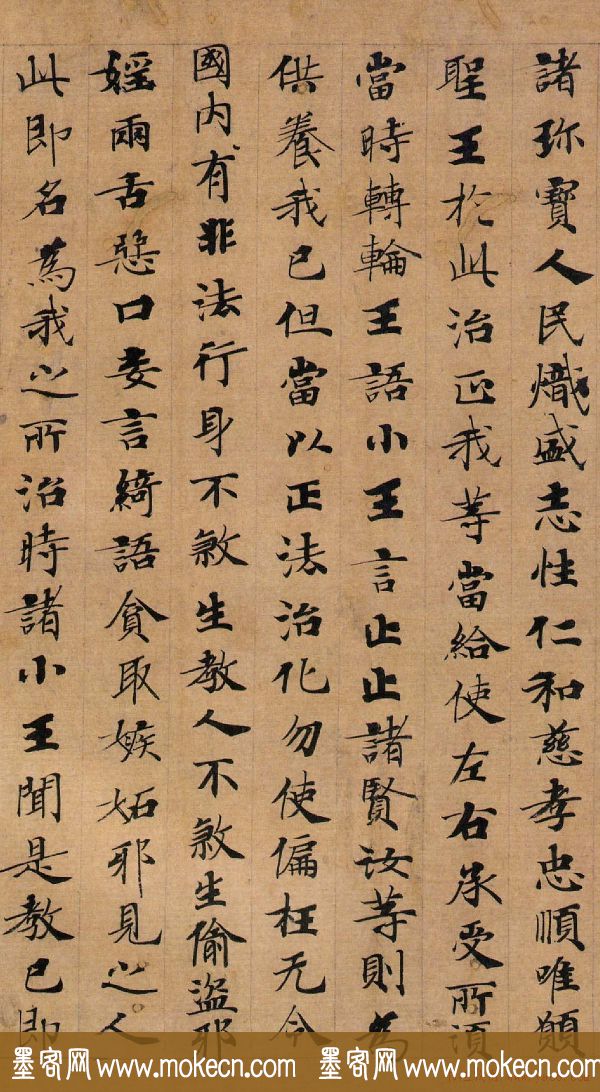 諸珎寶人民熾盛志性仁和慈孝忠順唯願
聖王於此治正我等當給使左右承受所須
當時轉輪王語小王言止止諸賢汝等則為
供養我已但當以正法治化勿使偏枉无令
國內有非法行身不煞生教人不煞生偷盜邪
婬兩舌惡口妄言綺語貪取嫉妬邪見之人
此即名為我之所治時諸小王聞是教已即
墨客网 www.mokecn.com 墨客网 www.mokecn.com